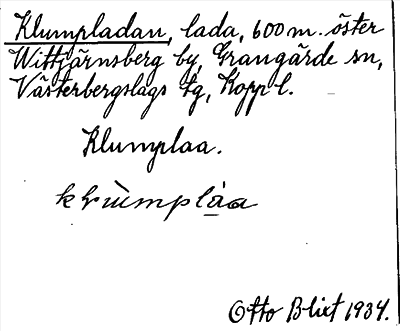 Klumpladan, lada, 600 m. öster
Wittjärnsberg by, Grangärde sn,
Västerbergslags tg, Kopp l.
Klumplaa.
Otto Blixt 1934.